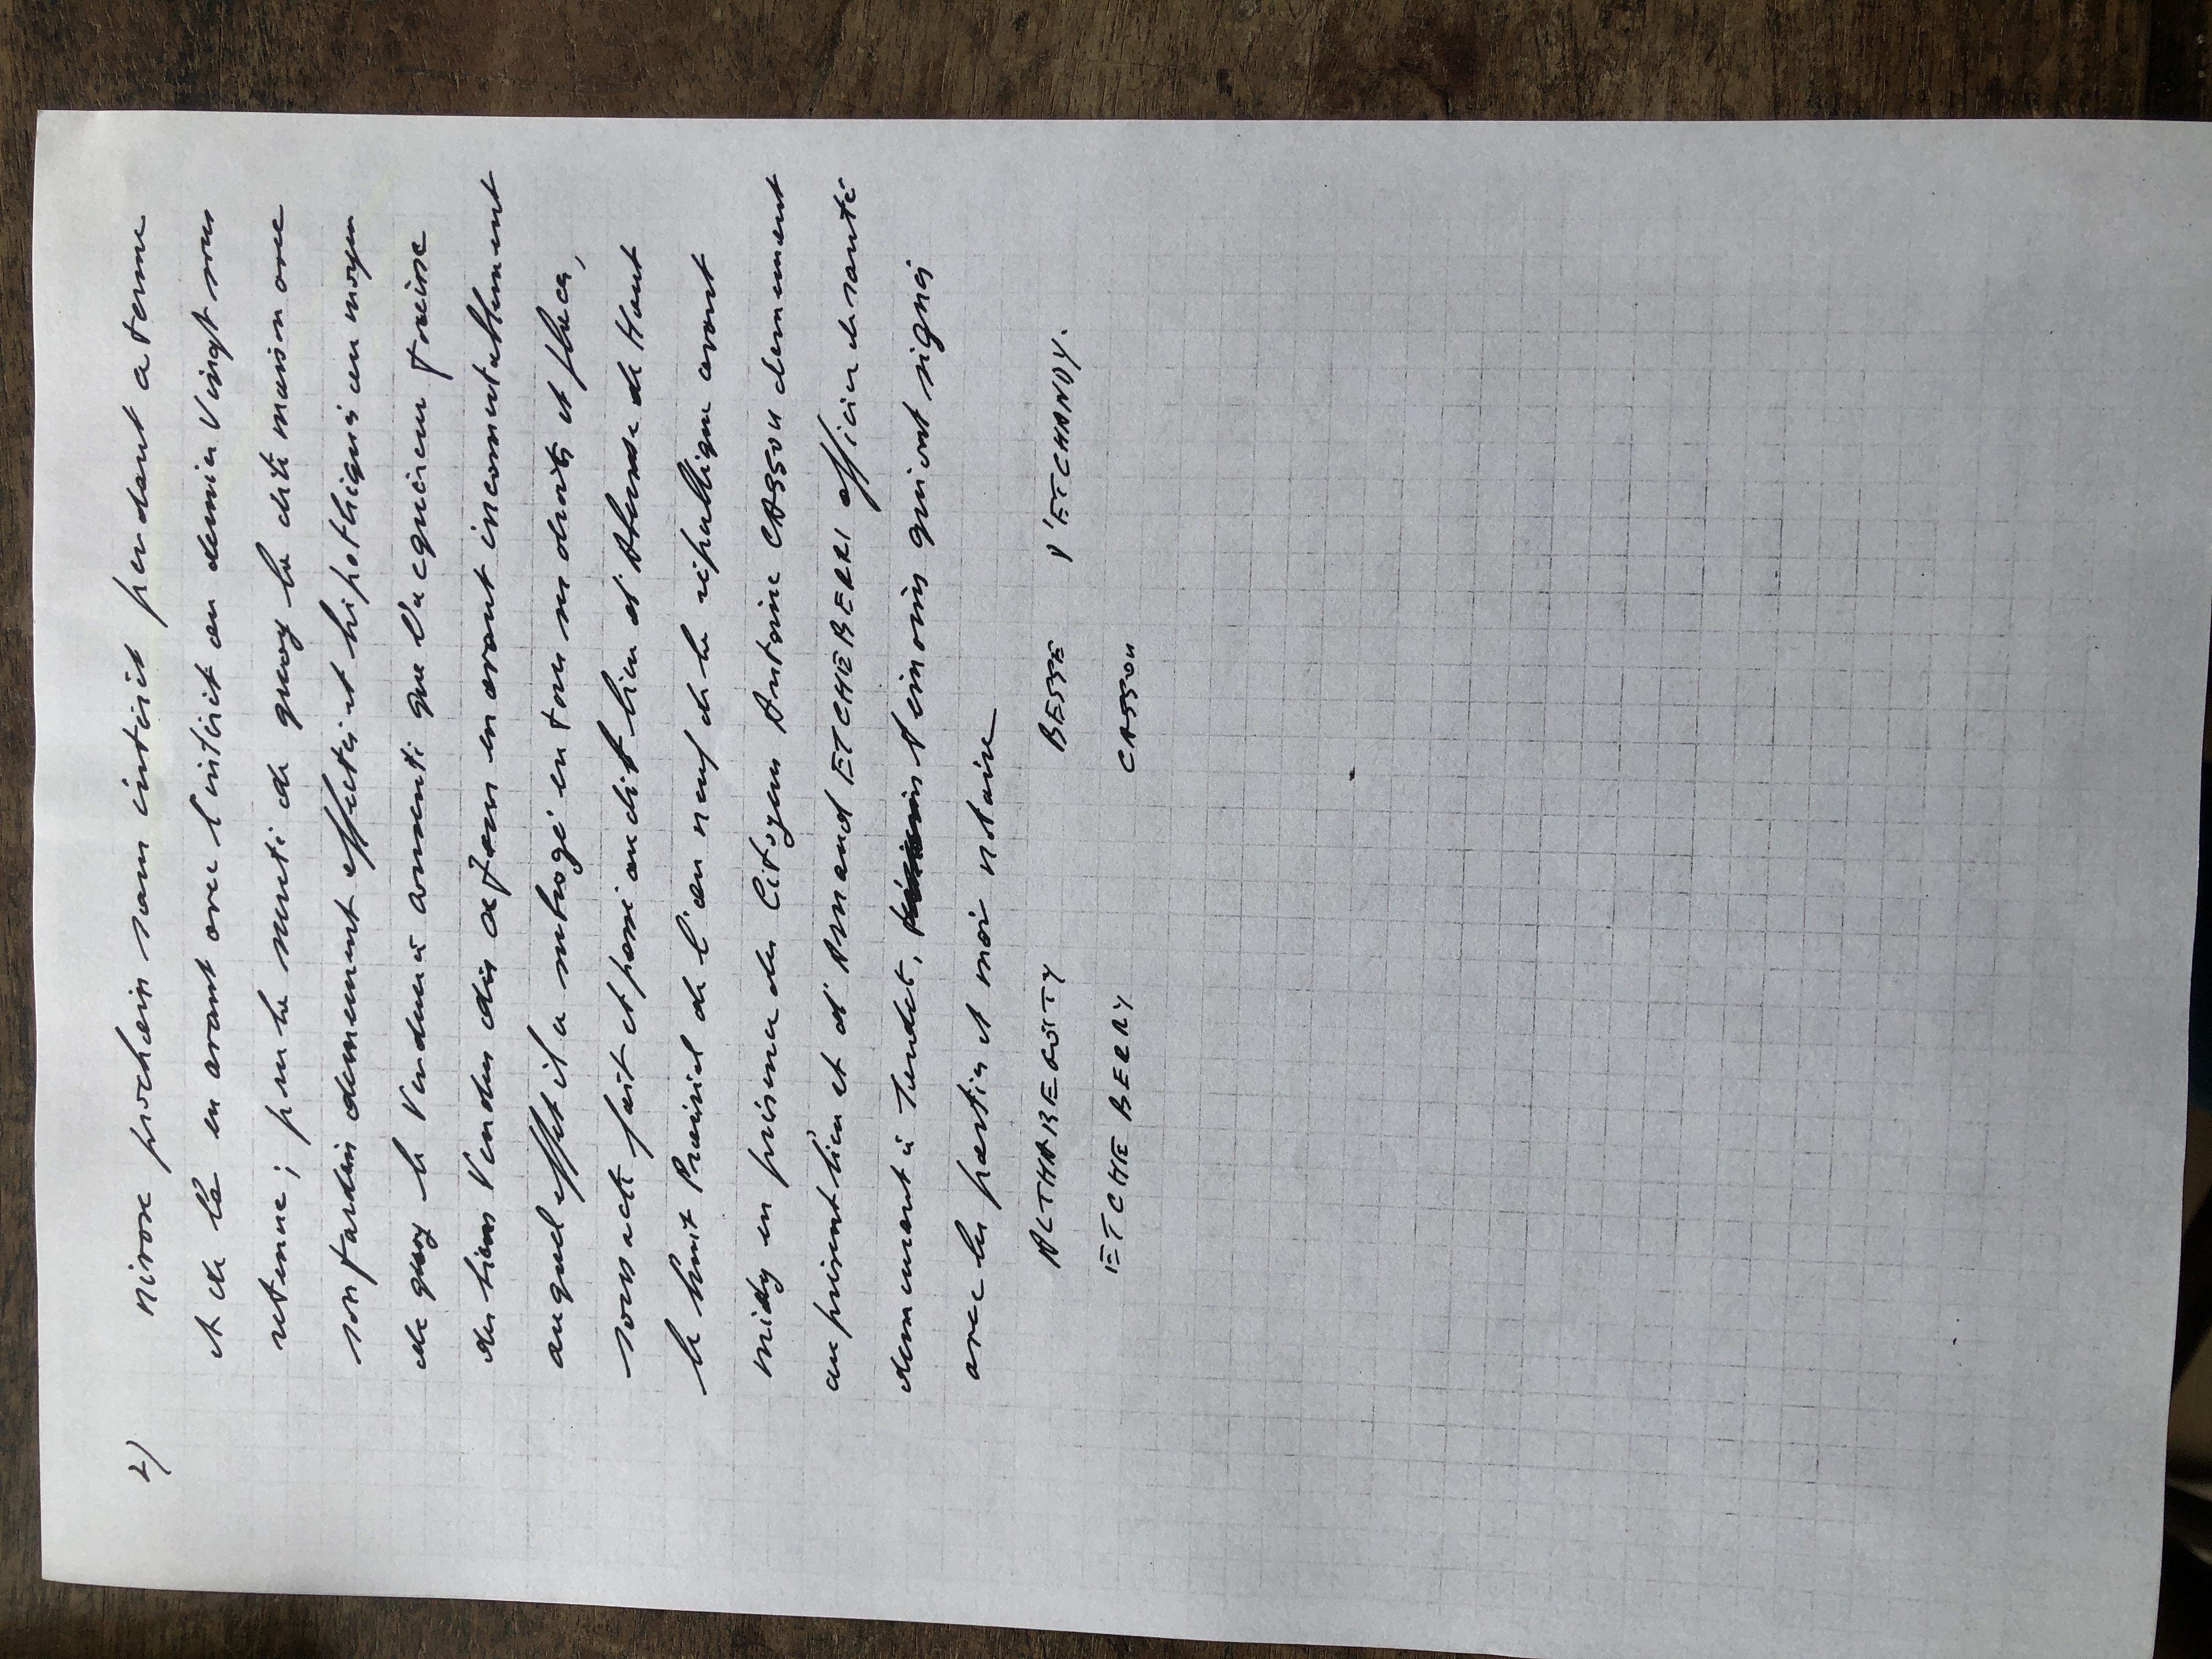 2) nivose prochein sans intérêt pendant a terme
et de la en avant avec l'intérêt au denier Vingt sous
retenue ; pour la sureté de quoy la dite maison avec
son jardin demeureront effectés et hipothiqués au moyen
de quoy le Vendeur a consenti que l'acquéreur
des biens Vendus dès a
auquel effet il a subrogé en tous ses droits et places,
sous acte fait et passé audit lieu d'Abense de Haut
le huit Prairial de l'an neuf de la république avant
midy en présence des Citoyens Antoine CASSOU demeurant
au présent lieu et d'Armand ETCHEBERRI officier de santé
demeurant à Tardets, témoins qui ont signé
avec les parties et moi notaire
ALTHABEGOITY BESSE D'ETCHANDY.
ETCHEBERRY CASSOU